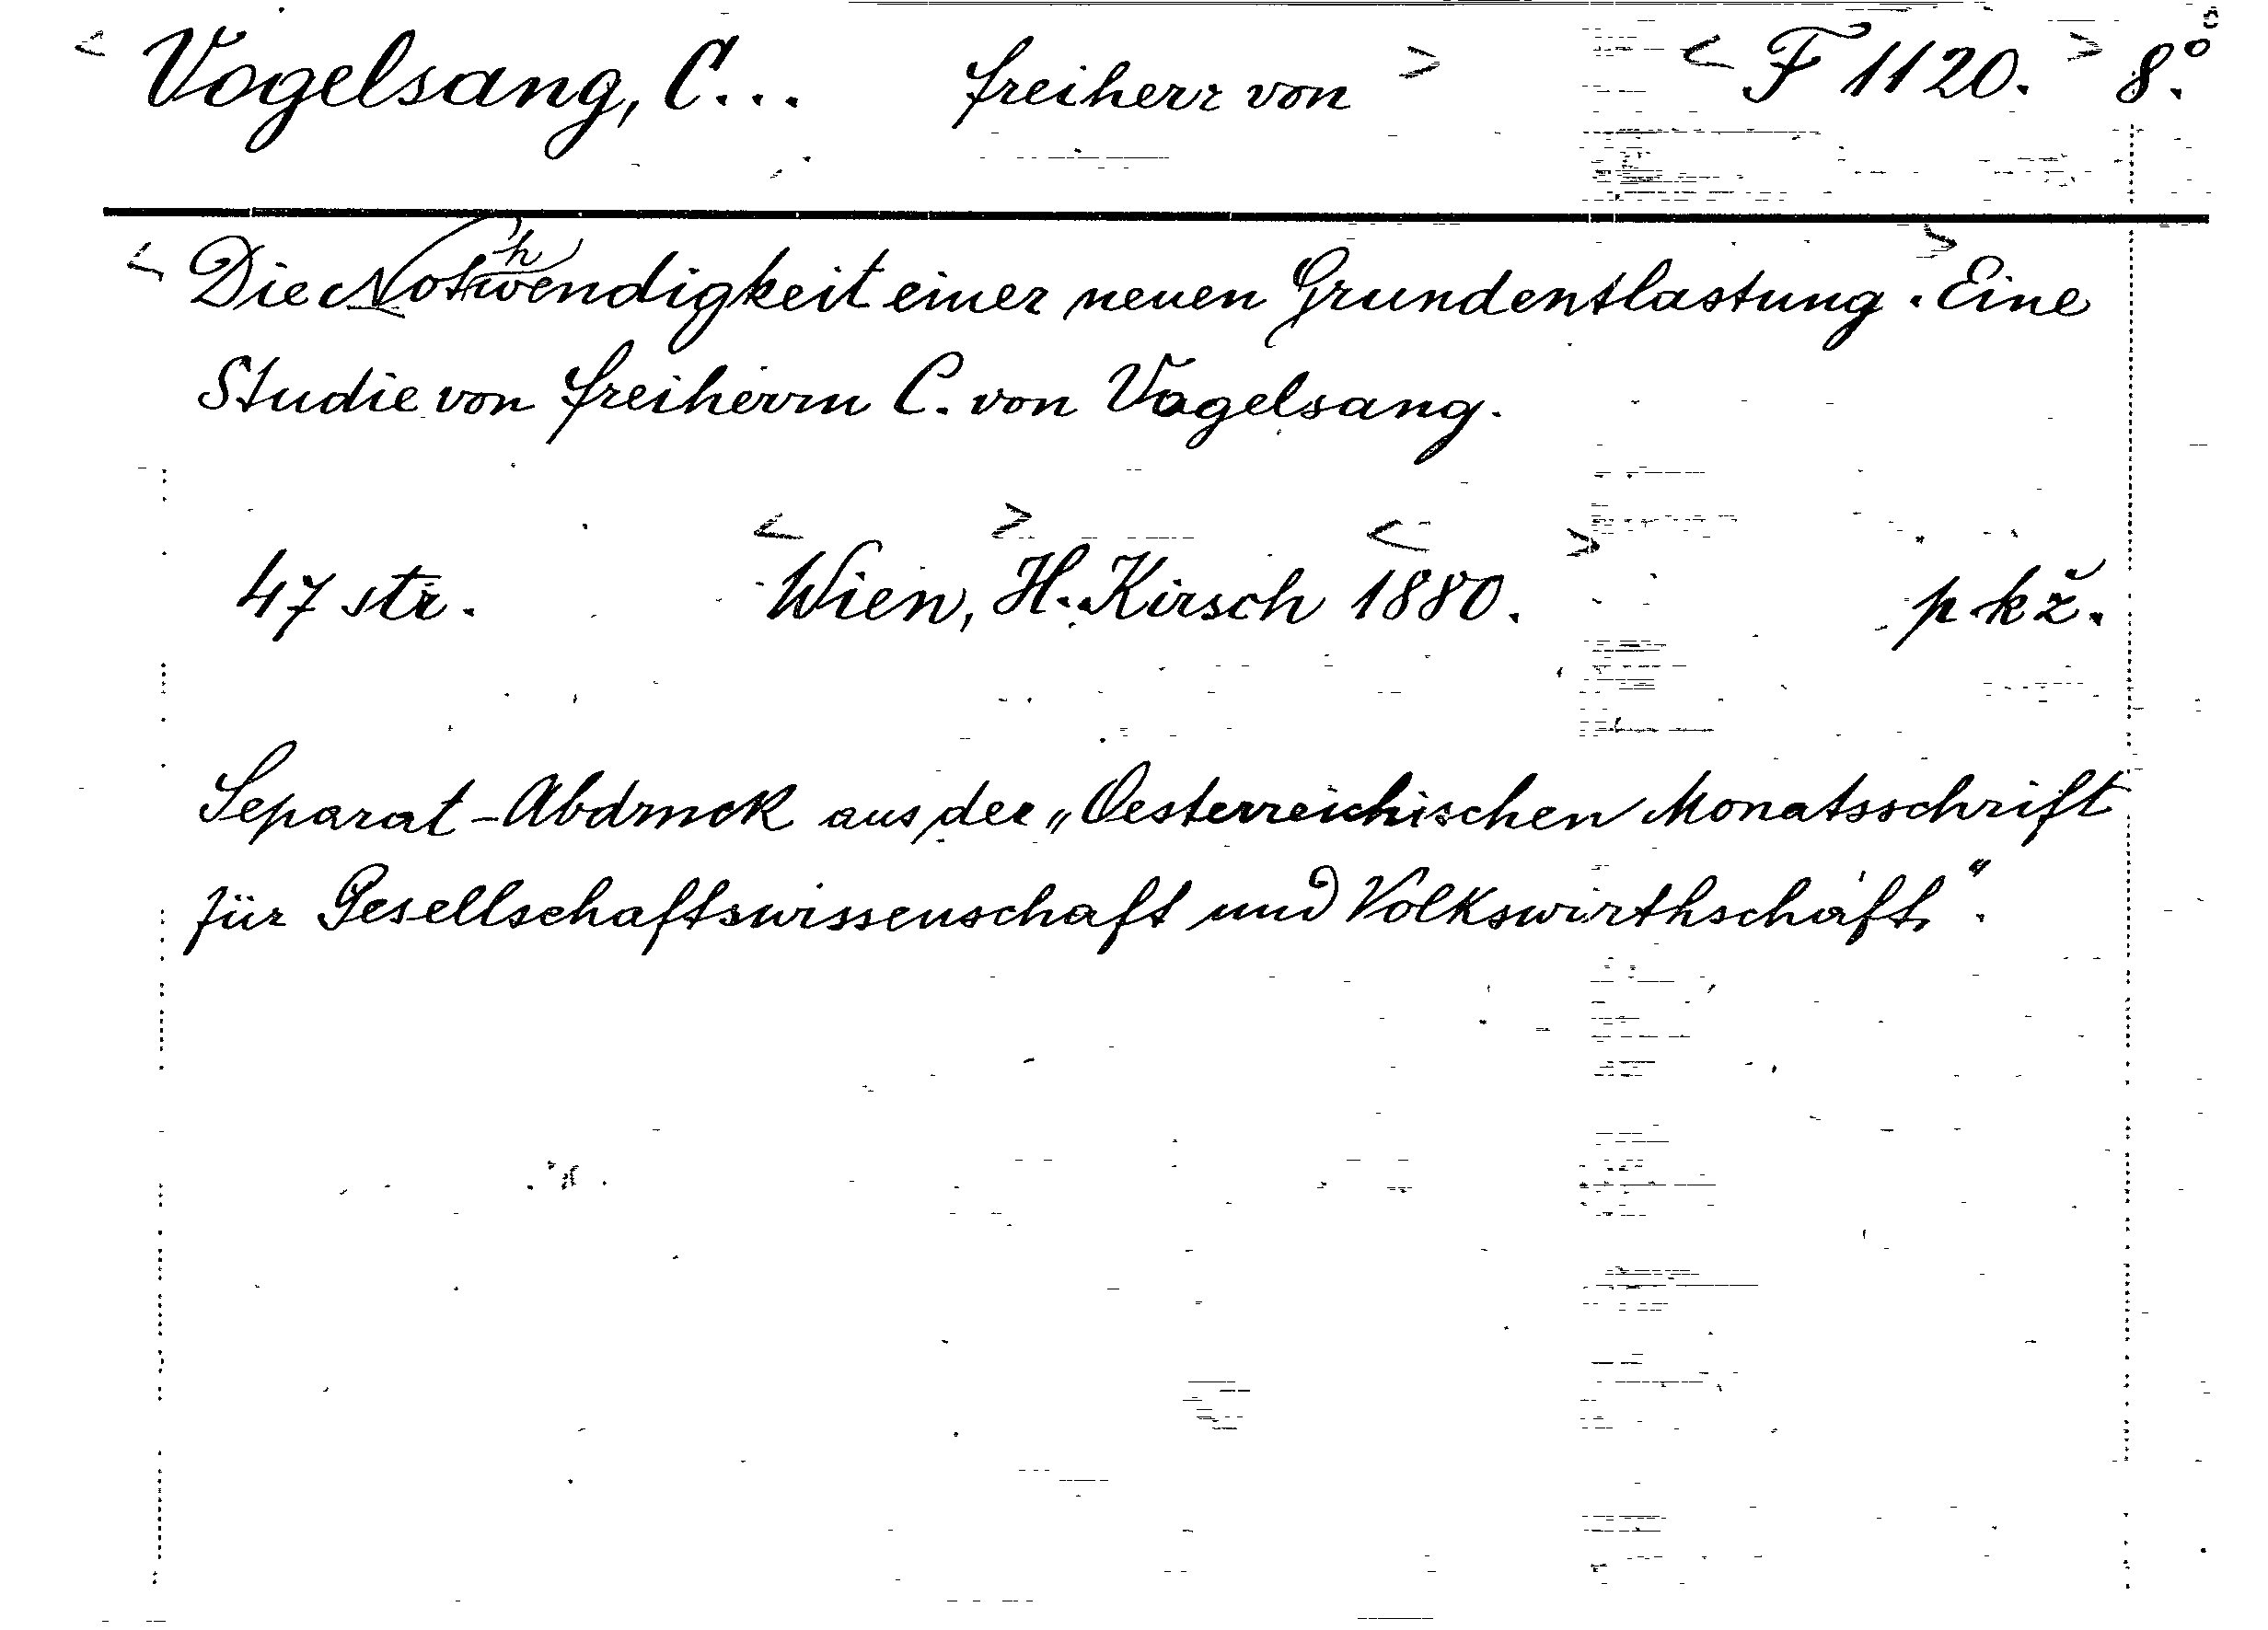 < Vogelsang, C... freiherr von > < F 1120. > 8.°
< Die Nothwendigkeit einer neuen Grundentlastung >. Eine
Studie von freiherrn C. von Vogelsang.
47 str. < Wien, > H. Kirsch < 1880. > p kž.
Separat-Abdruck aus der „Oesterreichischen Monatsschrift
für Gesellschaftswissenschaft und Volkswirthschaft“.